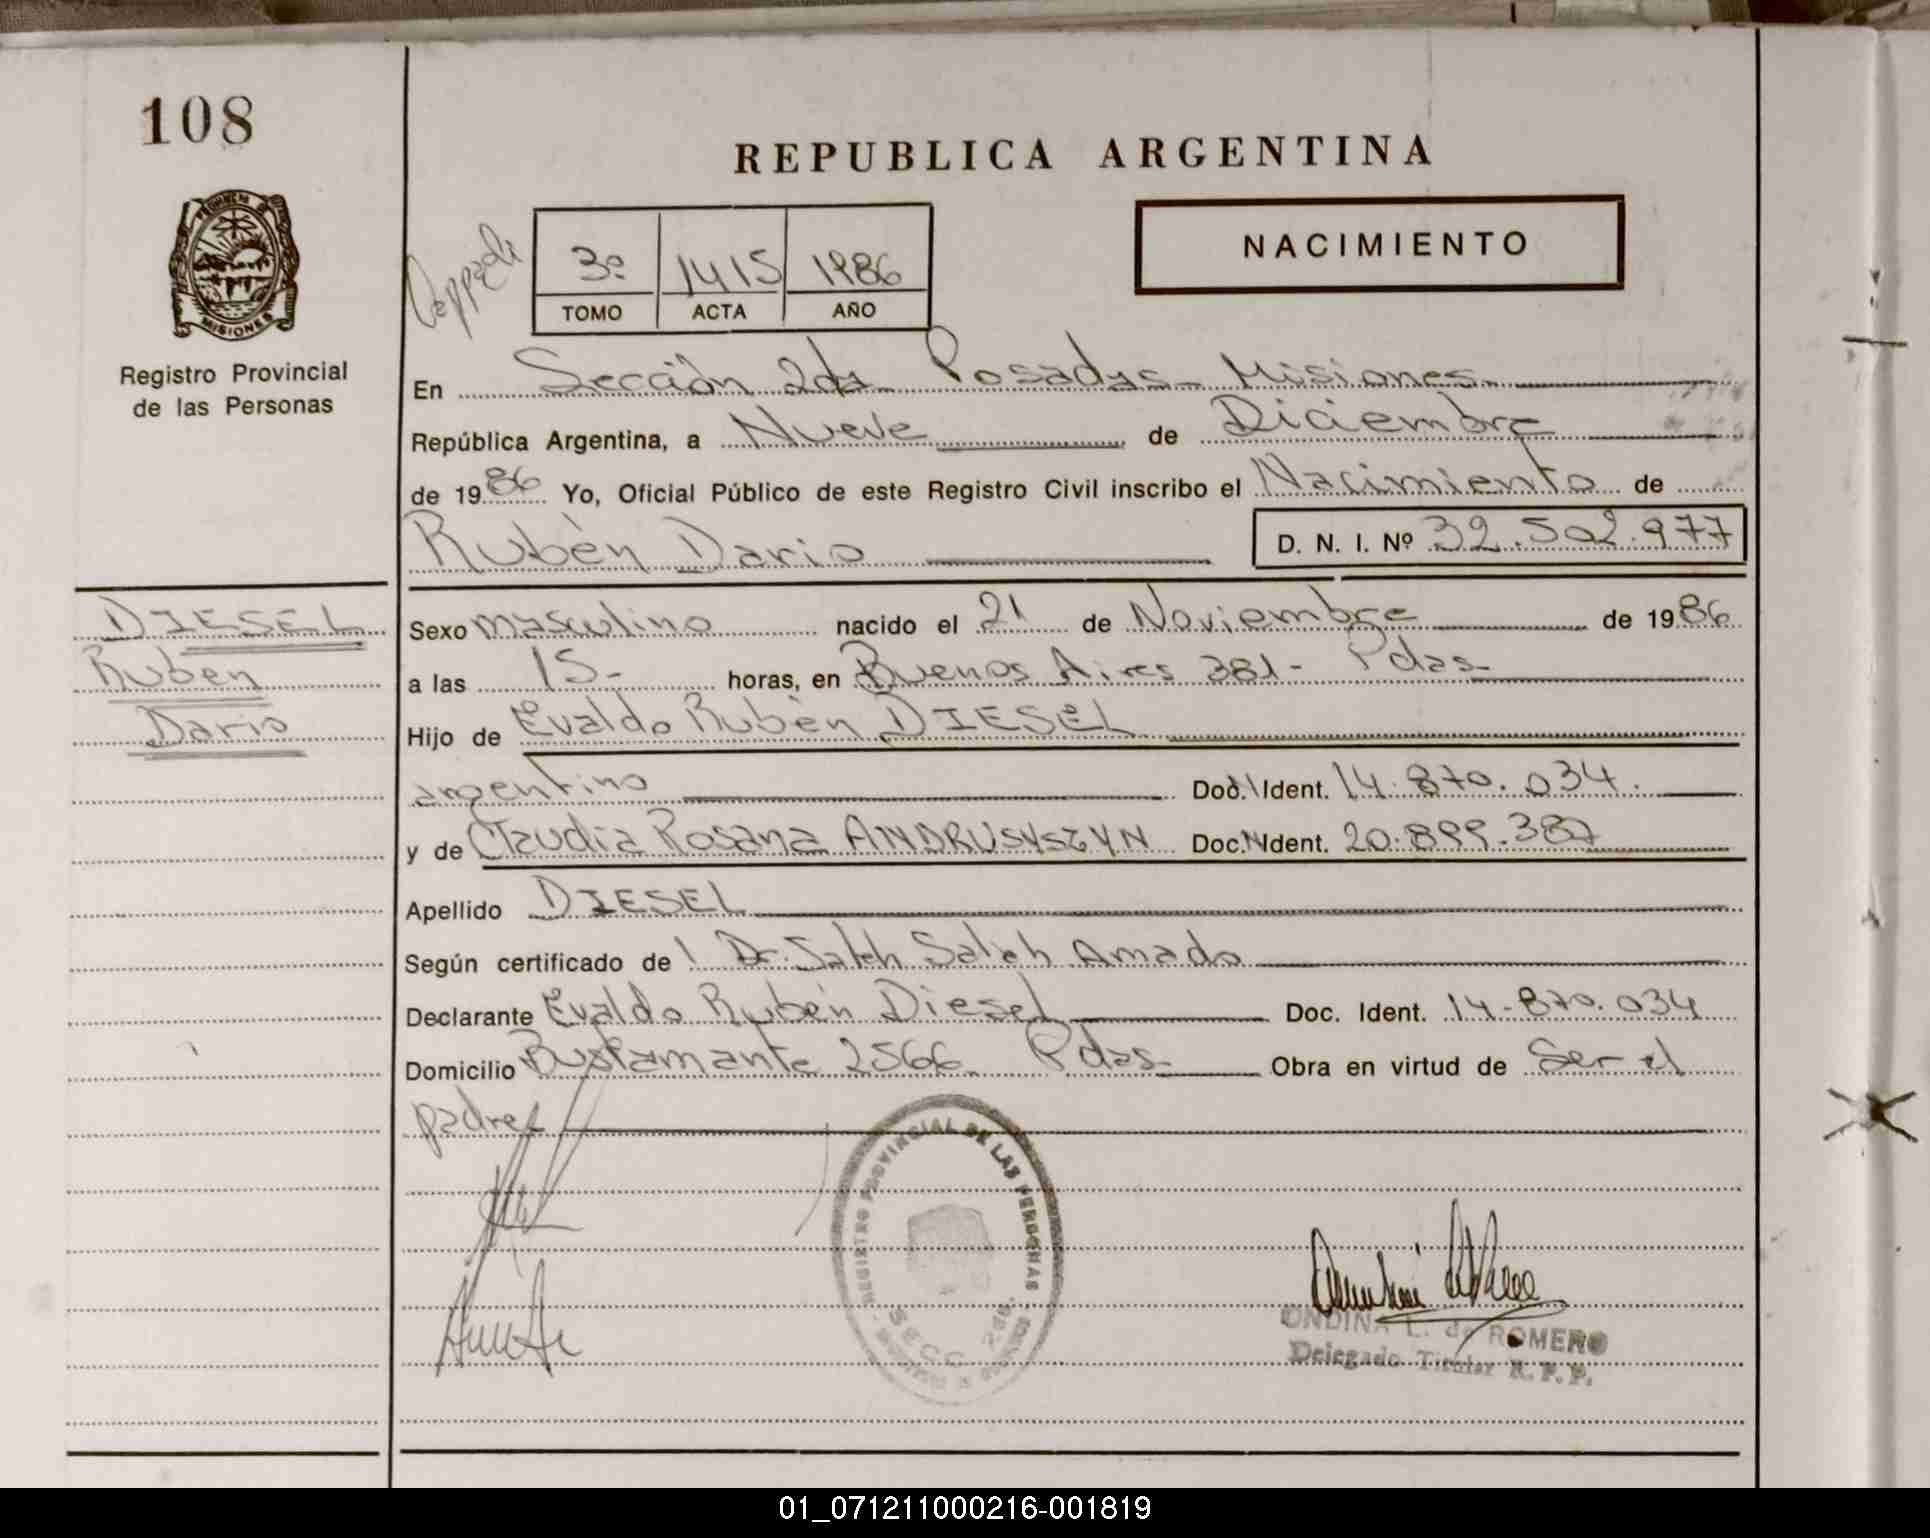 108
REPUBLICA ARGENTINA
PROVINCIA DE
MISIONES
Registro Provincial
de las Personas
3º 1415 1986
TOMO ACTA AÑO
NACIMIENTO
En Sección 2da Posadas Misiones
República Argentina, a Nueve de Diciembre
de 1986 Yo, Oficial Público de este Registro Civil inscribo el Nacimiento de
Rubén Dario D. N. I. Nº 32.502.977
DIESEL
Ruben
Dario
Sexo masculino nacido el 21 de Noviembre de 1986
a las 15- horas, en Buenos Aires 381- Pdas-
Hijo de Evaldo Rubén DIESEL
argentino Doc. Ident. 14.870.034.
y de Claudia Rosana ANDRUSYSZYN Doc. Ident. 20.899.387
Apellido DIESEL
Según certificado de Dr. Saleh Saleh Amado
Declarante Evaldo Rubén Diesel Doc. Ident. 14-870.034
Domicilio Bustamante 2566 Pdas- Obra en virtud de Ser el
padre
REGISTRO PROVINCIAL DE LAS PERSONAS
SECC. 2da.
ONDINA L. de ROMERO
Delegado Titular R. P. P.
01_071211000216-001819